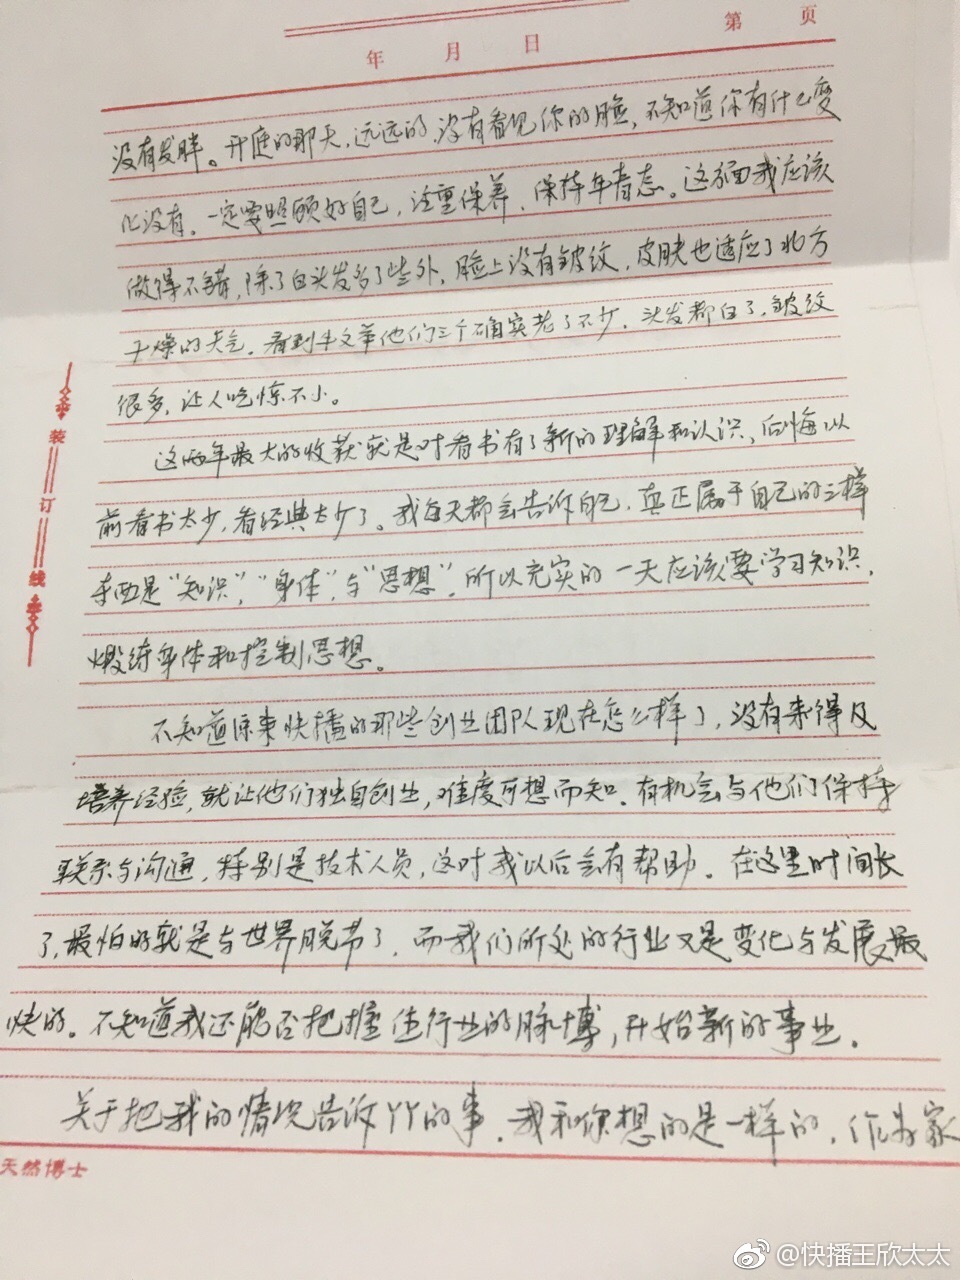 第 页
年 月 日
没有发胖。开庭的那天,远远的,没有看见你的脸,不知道你有什么变
化没有。一定要照顾好自己,注重保养,保持年青态。这方面我应该
做得不错,除了白头发多了些外,脸上没有皱纹,皮肤也适应了北方
干燥的天气。看到牛文举他们三个确实老了不少,头发都白了,皱纹
很多,让人吃惊不小。
这两年最大的收获就是对看书有了新的理解和认识,后悔以
前看书太少,看经典太少了。我每天都会告诉自己,真正属于自己的三样
东西是“知识”,“身体”,与“思想”。所以充实的一天应该要学习知识,
煅练身体和控制思想。
不知道原来快播的那些创业团队现在怎么样了,没有来得及
培养经验,就让他们独自创业,难度可想而知。有机会与他们保持
联系与沟通,特别是技术人员,这对我以后会有帮助。在这里时间长
了,最怕的就是与世界脱节了,而我们所处的行业又是变化与发展最
快的。不知道我还能否把握住行业的脉博,开始新的事业。
关于把我的情况告诉丫丫的事,我和你想的是一样的,作为家
装订线
天然博士
@快播王欣太太